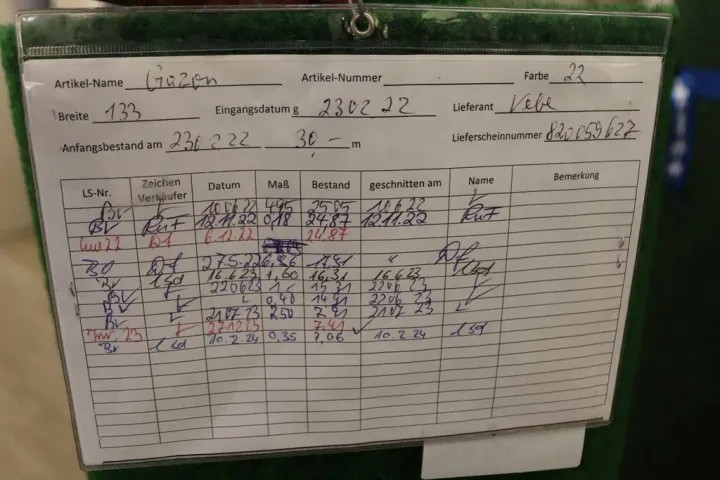 Artikel-Name Gazon Artikel-Nummer Farbe 22
Breite 133 Eingangsdatum g 230222 Lieferant Vebe
Anfangsbestand am 230222 30,- m Lieferscheinnummer 820059627
LS-Nr. Zeichen Verkäufer Datum Maß Bestand geschnitten am Name Bemerkung
BV 10.6.22 4,95 25,05 10.6.22
BV RuF 12.11.22 0,18 24,87 12.11.22 RuF
22 Df 6.12.22 24,87
Df 6,86 Df
BV 16.6.23 1,60 16,31 16.6.23
BV 220623 1,- 15,31 220623
BV 0,40 14,91 2206 23
BV 2107 23 7,50 7,41 2107 23
Inv. 23 271223 7,41
BV 10.2.24 0,35 7,06 10.2.24